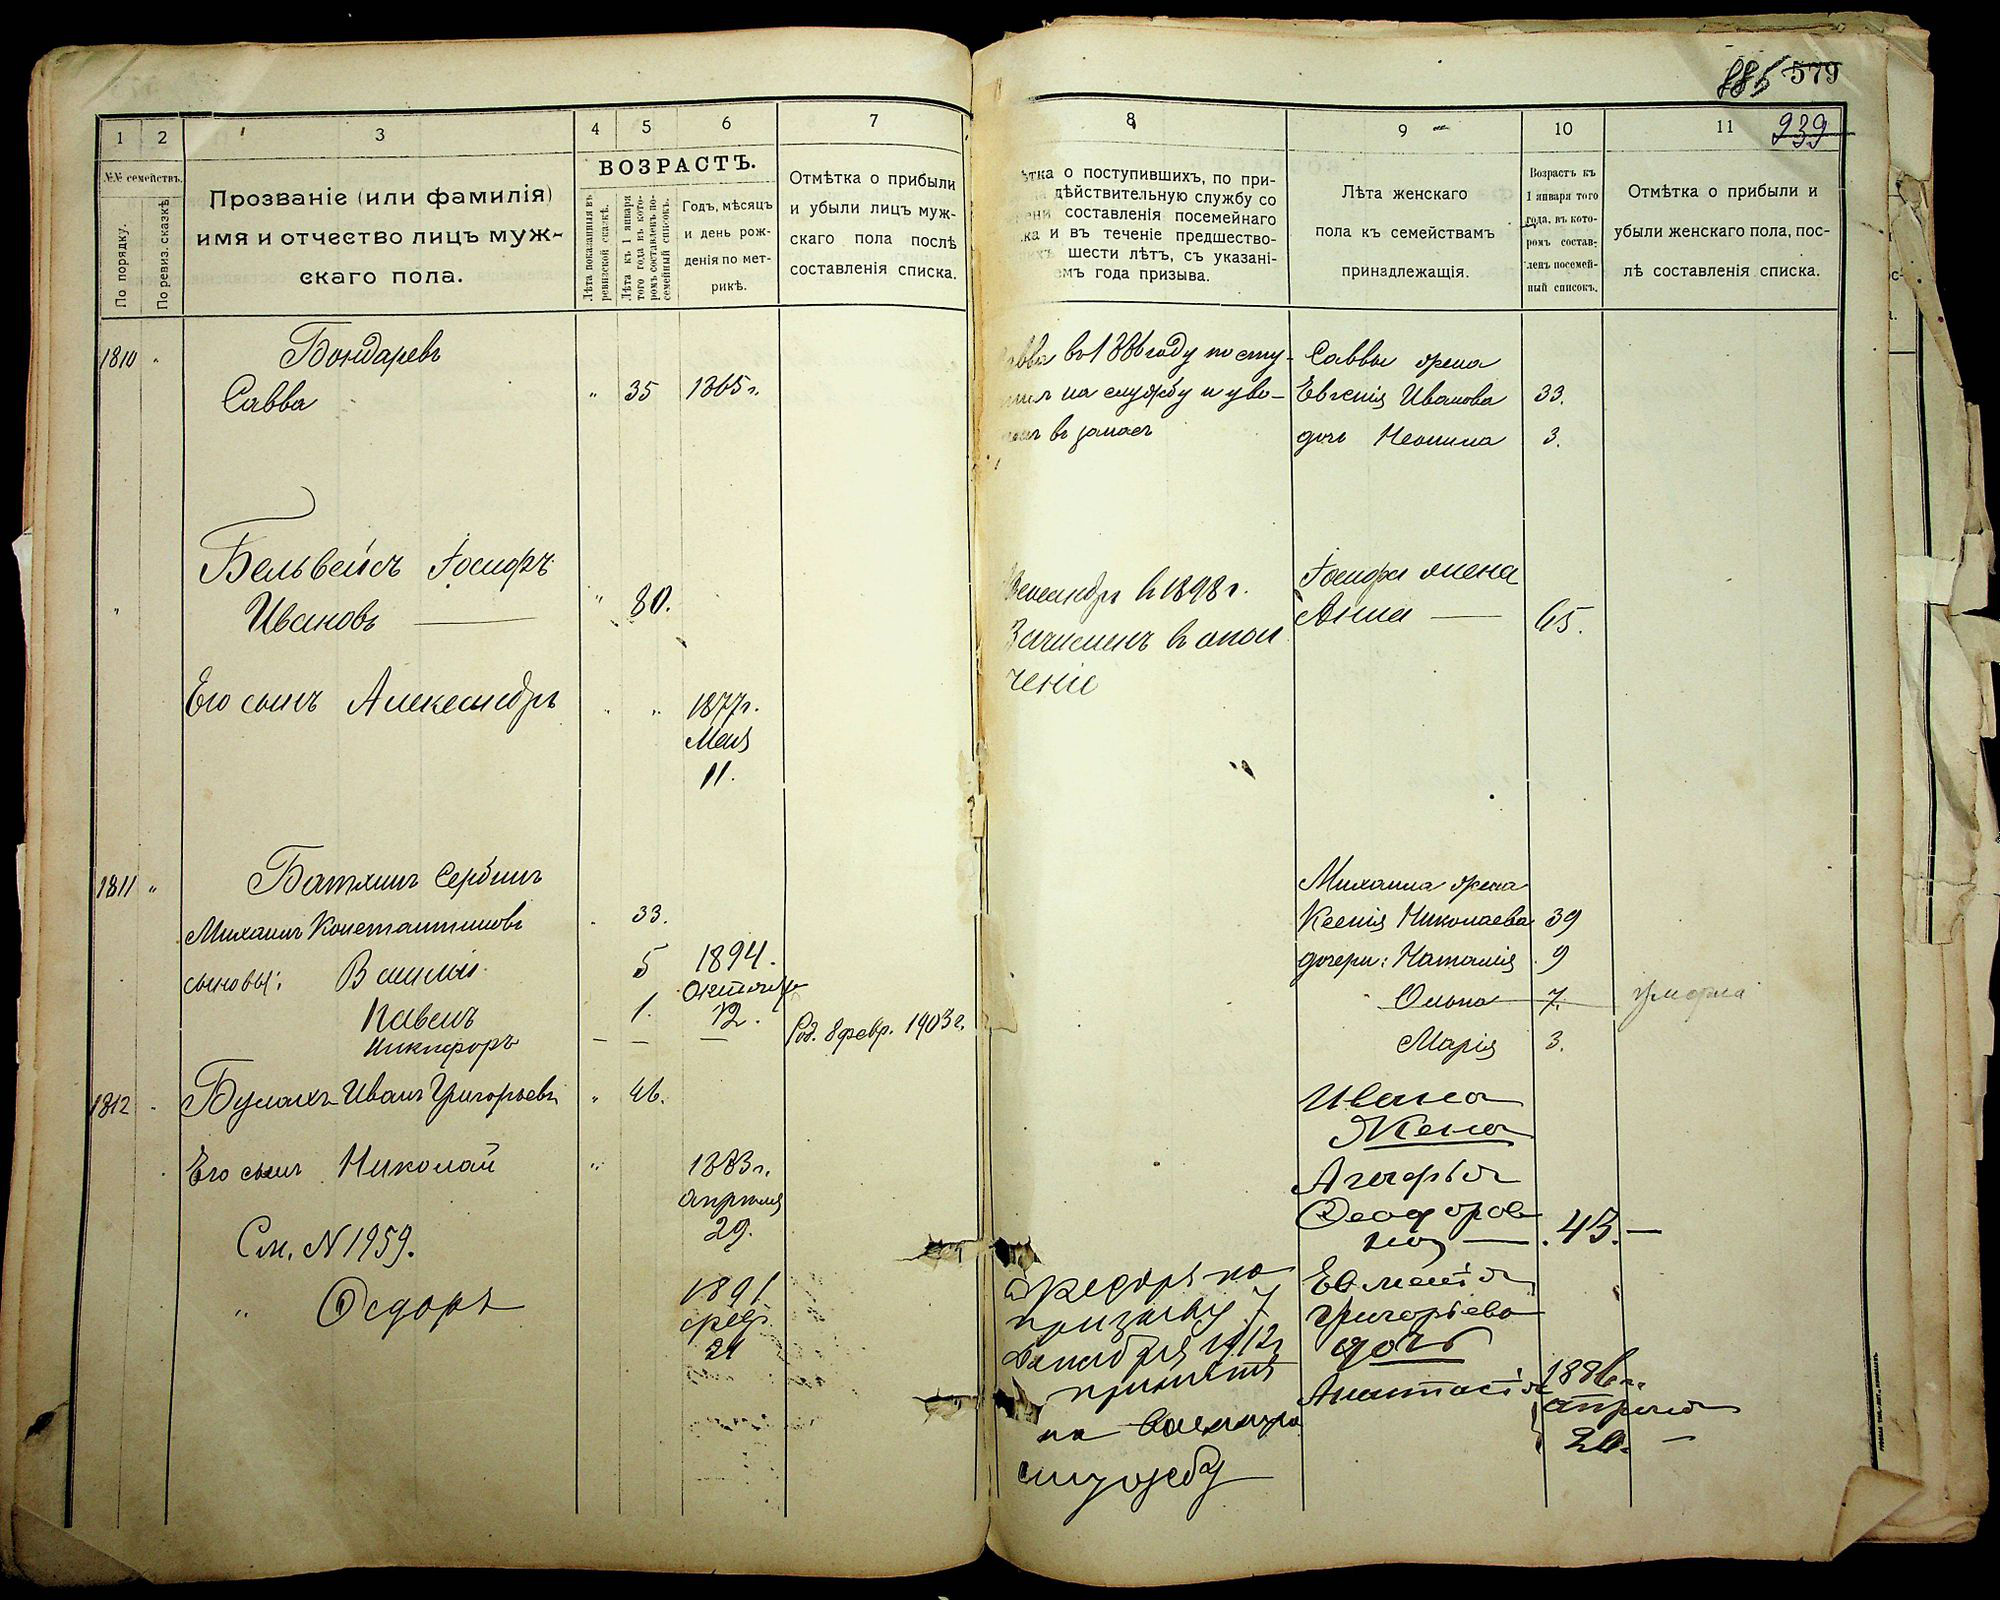 885 579
939
1 2 3 4 5 6 7
№№ семействъ.
По порядку.
По ревиз. сказкѣ
Прозваніе (или фамилія)
имя и отчество лицъ муж-
скаго пола.
ВОЗРАСТЪ.
Лѣта показанныя въ
ревизской сказкѣ.
Лѣта къ 1 января
того года въ кото-
ромъ составленъ по-
семейный списокъ.
Годъ, мѣсяцъ
и день рож-
денія по мет-
рикѣ.
Отмѣтка о прибыли
и убыли лицъ муж-
скаго пола послѣ
составленія списка.
1810 Бондаревъ
Савва " 35 1865 г.
Бельвейсъ Іосифъ
Ивановъ " 80.
Его сынъ Александръ " " 1877 г.
Мая
11.
1811 " Батхинъ Сербинъ
Михаилъ Константиновъ 33.
сыновья: Василій 5 1894.
Октября
Павелъ 1. 12.
Никифоръ — — — Род. 8 февр. 1903 г.
1812 Булахъ Иванъ Григорьевъ " 46.
Его сынъ Николай " 1883 г.
апрѣля
29.
См. N 1959.
" Ѳедоръ 1891
февр.
24
8 9 10 11
ѣтка о поступившихъ, по при-
дѣйствительную службу со
ени составленія посемейнаго
ка и въ теченіе предшество-
ихъ шести лѣтъ, съ указані-
емъ года призыва.
Лѣта женскаго
пола къ семействамъ
принадлежащія.
Возрастъ къ
1 января того
года, въ кото-
ромъ состав-
ленъ посемей-
ный списокъ.
Отмѣтка о прибыли и
убыли женскаго пола, пос-
лѣ составленія списка.
авва въ 1886 году посту-
пилъ на службу и уво-
ленъ въ запасъ
Саввы жена
Евгенія Иванова 33.
дочь Неонила 3.
Александръ въ 1898 г.
Зачисленъ въ опол
ченіе
Іосифа жена
Анна — 65.
Михаила жена
Ксенія Николаева 39
дочери: Наталія 9
Ольга 7. умерла
Марія 3.
Ивана
Жена
Агафья
Ѳеодоров
на — 45. —
Ѳедоръ по
призыву 7
Декабря 1912
принятъ
на военную
службу
Евгенія
Григорьева
дочь
Анастасія 1886 г.
апреля
26. —